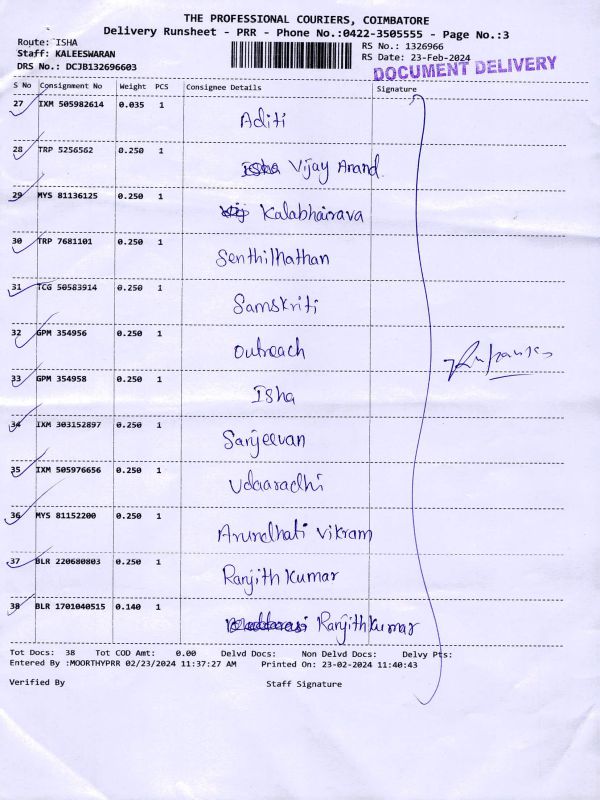 THE PROFESSIONAL COURIERS, COIMBATORE
Delivery Runsheet - PRR - Phone No.:0422-3505555 - Page No.:3
Route: ISHA
RS No.: 1326966
Staff: KALEESWARAN
RS Date: 23-Feb-2024
DRS No.: DCJB132696603
DOCUMENT DELIVERY
S No Consignment No Weight PCS Consignee Details Signature
27 IXM 505982614 0.035 1
Aditi
28 TRP 5256562 0.250 1
Isha Vijay Anand
29 MYS 81136125 0.250 1
Kalabhairava
30 TRP 7681101 0.250 1
Senthilnathan
31 TCG 50583914 0.250 1
Samskriti
32 GPM 354956 0.250 1
Outreach
33 GPM 354958 0.250 1
Isha
34 IXM 303152897 0.250 1
Sanjeevan
35 IXM 505976656 0.250 1
Udaaradhi
36 MYS 81152200 0.250 1
Arundhati Vikram
37 BLR 220680803 0.250 1
Ranjith Kumar
38 BLR 1701040515 0.140 1
Ranjith Kumar
Tot Docs: 38 Tot COD Amt: 0.00 Delvd Docs: Non Delvd Docs: Delvy Pts:
Entered By :MOORTHYPRR 02/23/2024 11:37:27 AM Printed On: 23-02-2024 11:40:43
Verified By Staff Signature